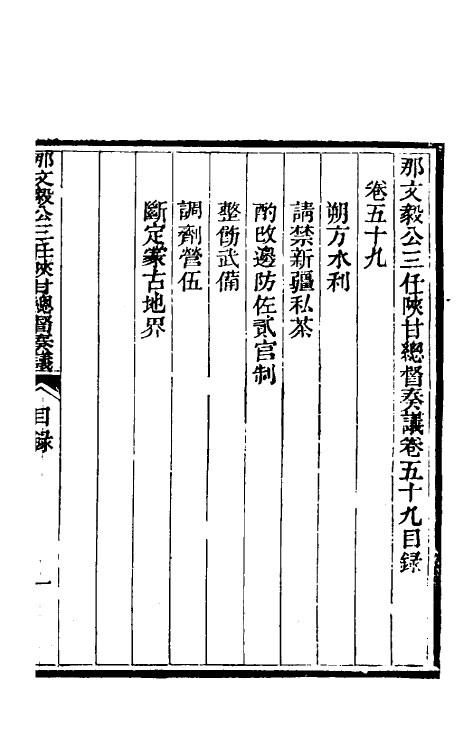 那文毅公三任陝甘總督奏議卷五十九目録
卷五十九
朔方水利
請禁新疆私茶
酌改邊防佐貳官制
整飭武備
調劑營伍
斷定蒙古地界
那文毅公三任陝甘總督奏議
目録
一